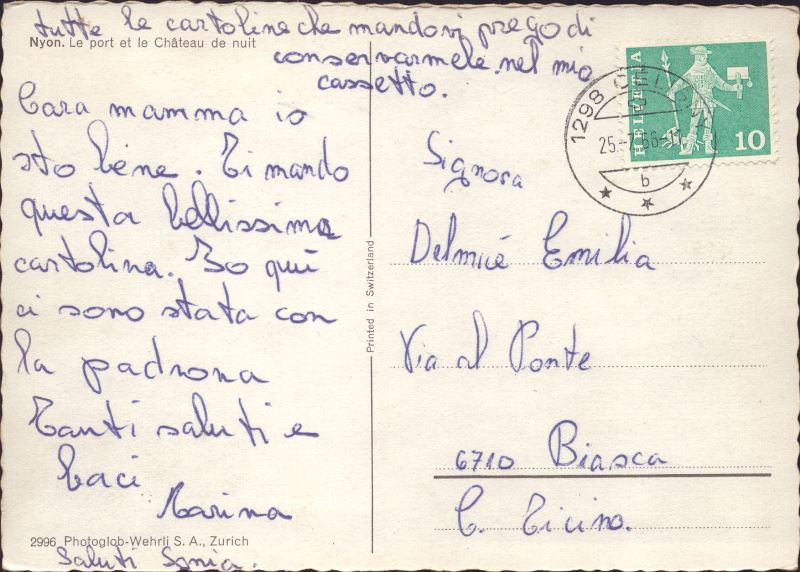 tutte le cartoline che mandovi prego di
conservarmele nel mio
cassetto.
Nyon. Le port et le Château de nuit
Cara mamma io
sto bene. Ti mando
questa bellissima
cartolina. Io quì
ci sono stata con
la padrona
Tanti saluti e
baci
Marina
2996 Photoglob-Wehrli S. A., Zurich
Saluti Sonia.
Printed in Switzerland
HELVETIA
10
1298 CÉLIGNY
25.-7.66-11
b
Signora
Delmué Emilia
Via al Ponte
6710 Biasca
C. Ticino.